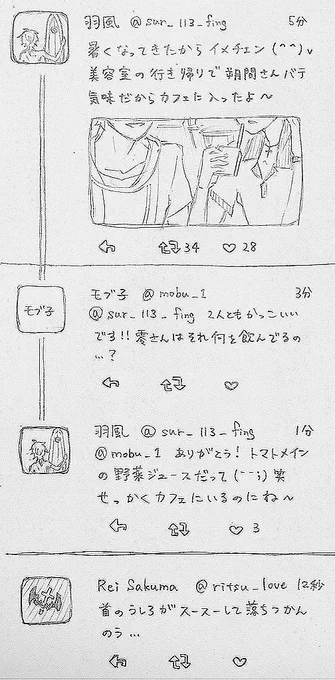 羽風 @sur_113_fing 5分
暑くなってきたからイメチェン(^^)v
美容室の行き帰りで朔間さんバテ
気味だからカフェに入ったよ～
34 28
モブ子
モブ子 @mobu_1 3分
@sur_113_fing 2人ともかっこいい
です!! 零さんはそれ何を飲んでるの
…?
羽風 @sur_113_fing 1分
@mobu_1 ありがとう! トマトメイン
の野菜ジュースだって(^^;)笑
せっかくカフェにいるのにね～
3
Rei Sakuma @ritsu_love 12秒
首のうしろがスースーして落ちつかん
のう…